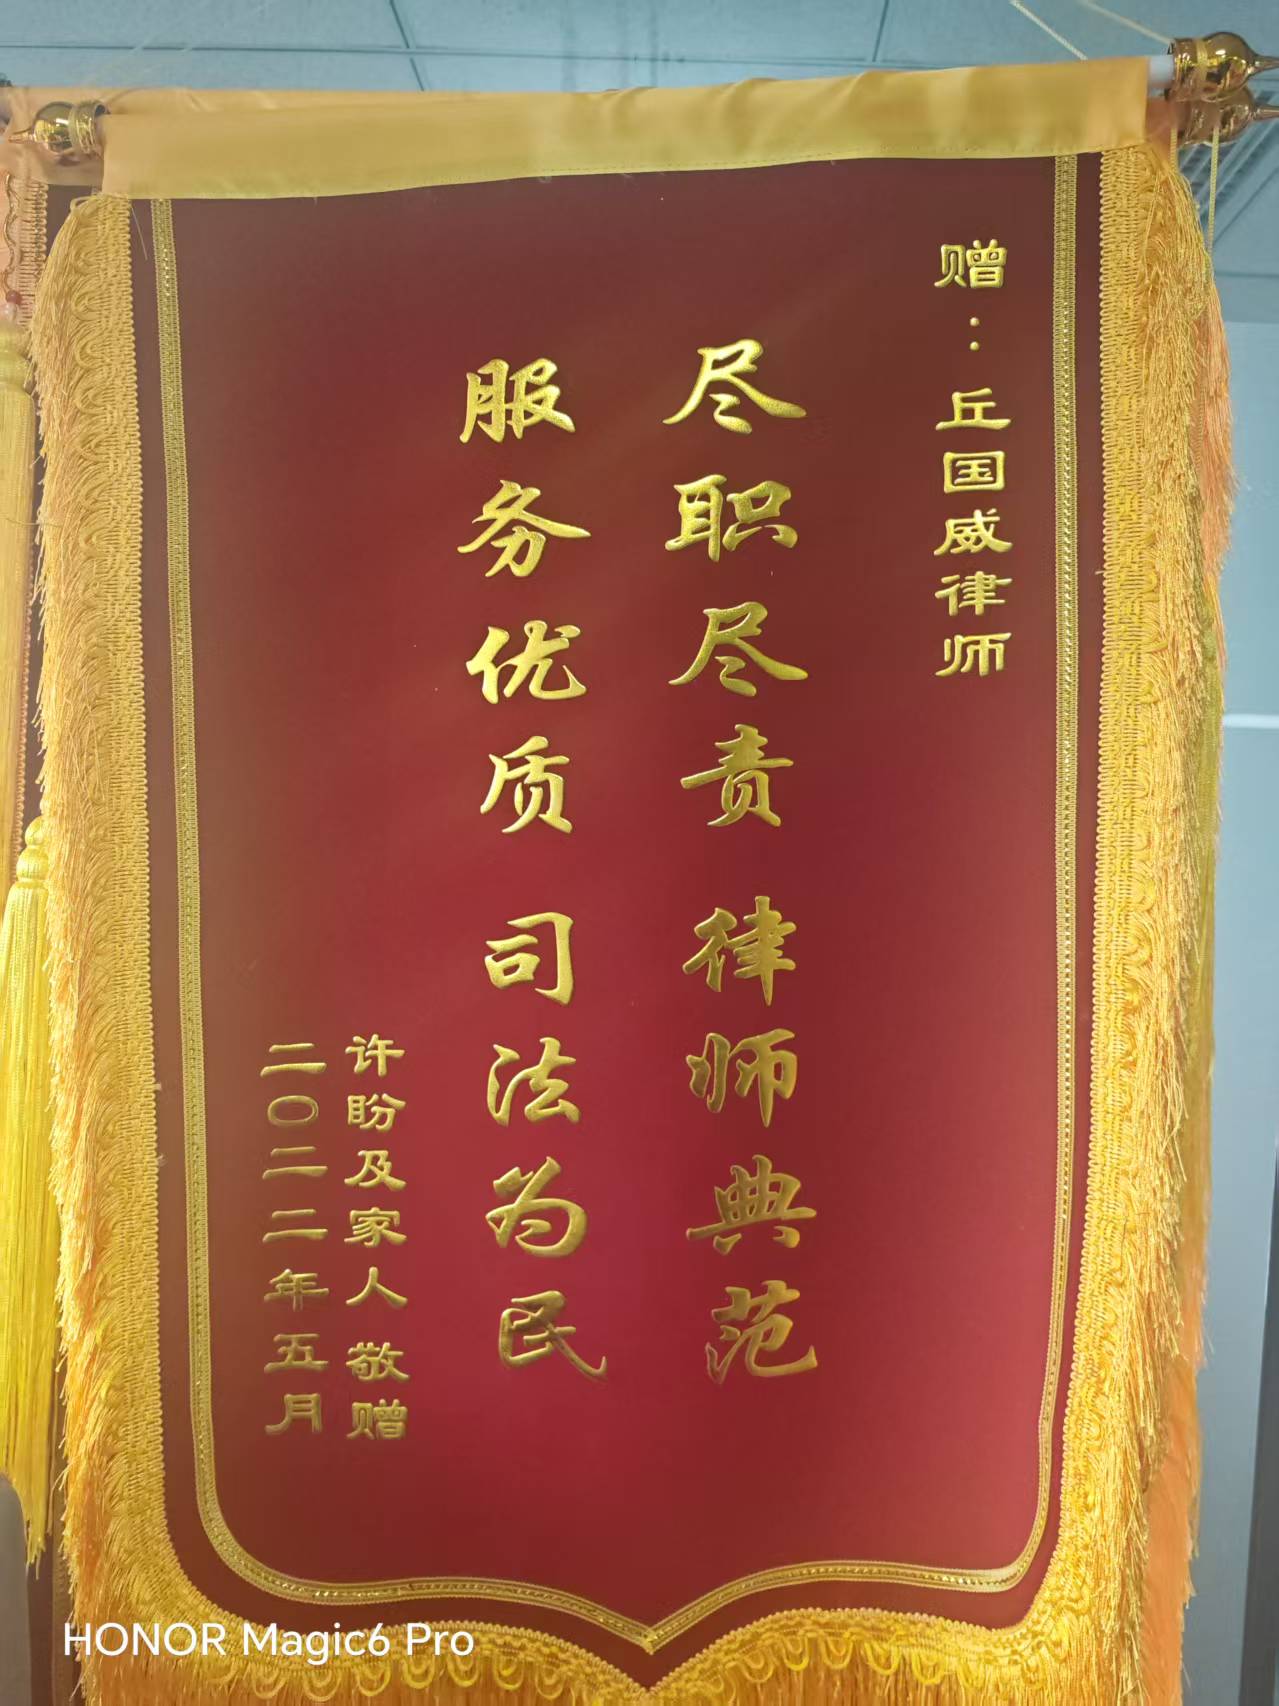 赠：丘国威律师
尽职尽责 律师典范
服务优质 司法为民
许盼及家人 敬赠
二〇二二年五月
HONOR Magic6 Pro